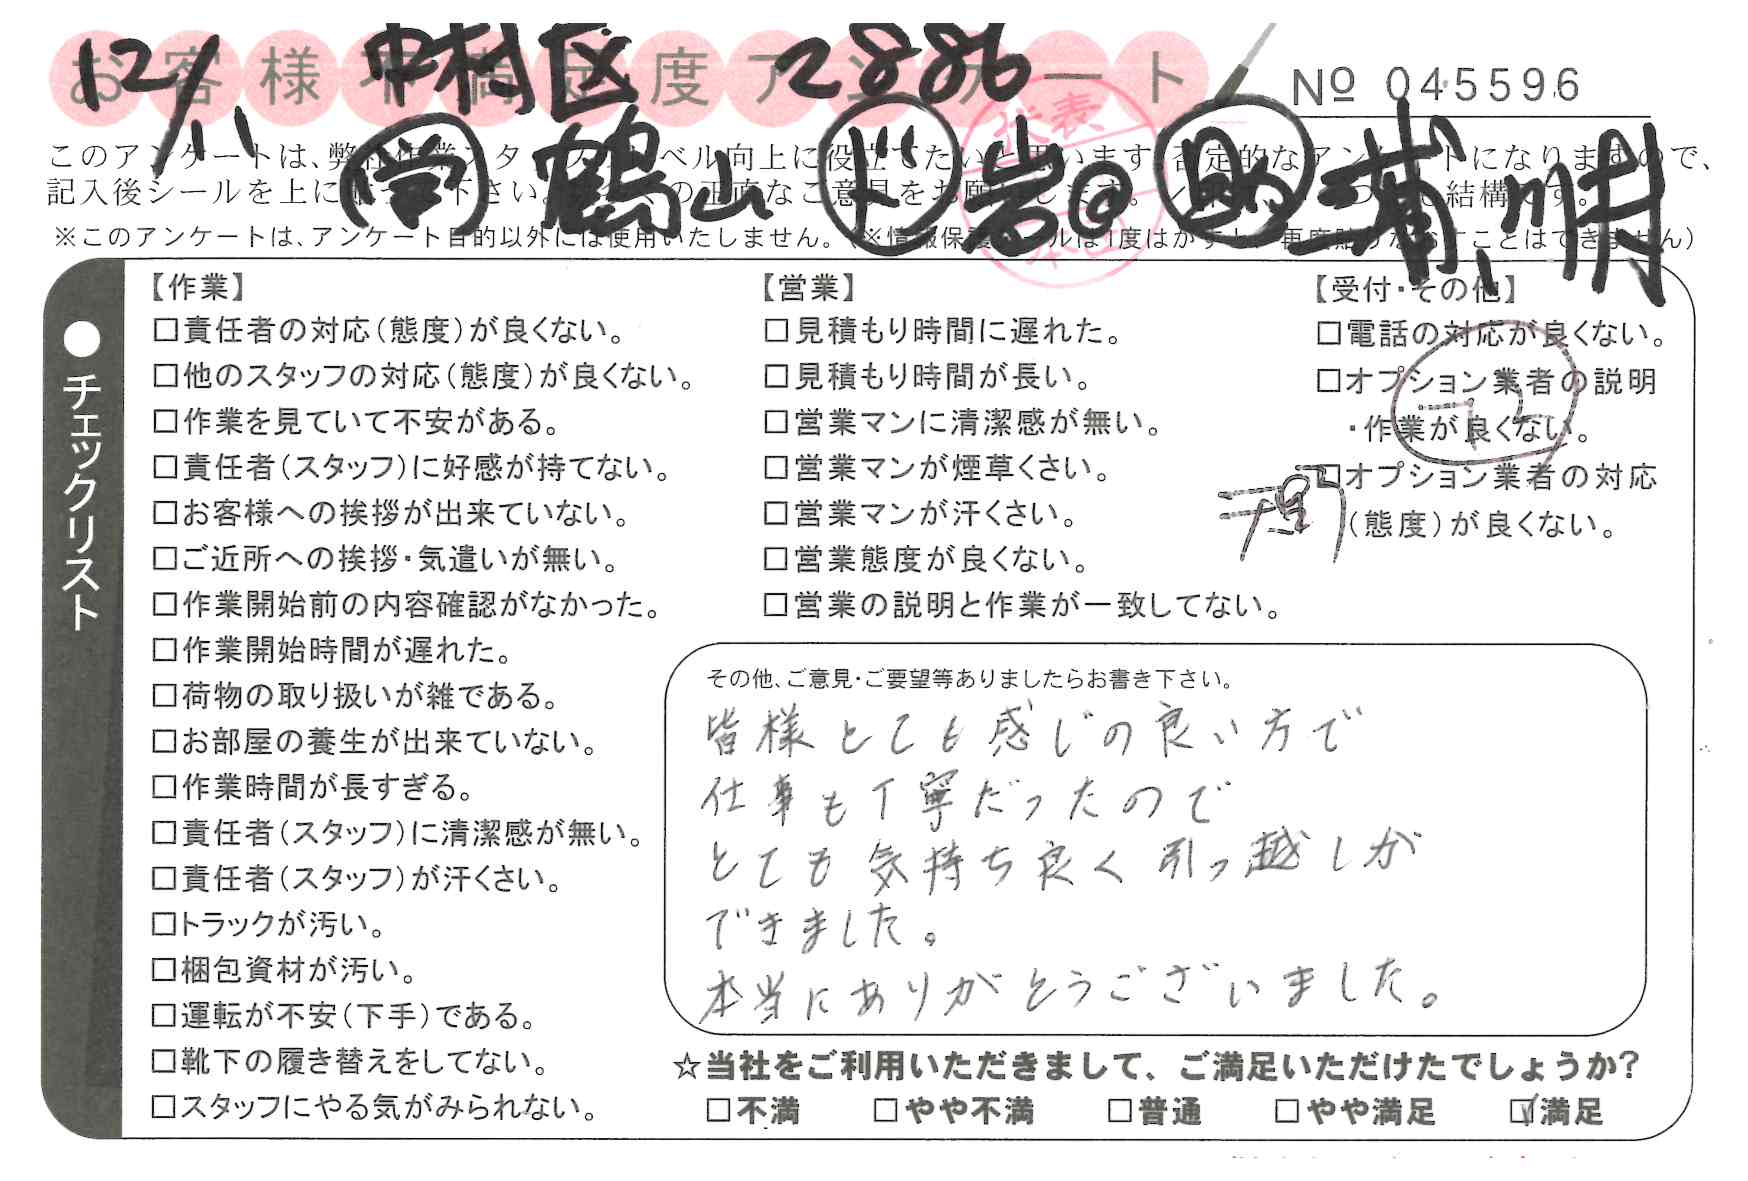 12/11 中村区 2886
お客様不満足度アンケート
№ 045596
営 鶴山 ド 岩 助 三浦、
このアンケートは、弊社作業スタッフのレベル向上に役立てたいと思います。否定的なアンケートになりますので、
記入後シールを上に貼って下さい。
※このアンケートは、アンケート目的以外には使用いたしません。(※情報保護シールは1度はがすと、再度貼りなおすことはできません)
チェックリスト
【作業】
□責任者の対応(態度)が良くない。
□他のスタッフの対応(態度)が良くない。
□作業を見ていて不安がある。
□責任者(スタッフ)に好感が持てない。
□お客様への挨拶が出来ていない。
□ご近所への挨拶・気遣いが無い。
□作業開始前の内容確認がなかった。
□作業開始時間が遅れた。
□荷物の取り扱いが雑である。
□お部屋の養生が出来ていない。
□作業時間が長すぎる。
□責任者(スタッフ)に清潔感が無い。
□責任者(スタッフ)が汗くさい。
□トラックが汚い。
□梱包資材が汚い。
□運転が不安(下手)である。
□靴下の履き替えをしてない。
□スタッフにやる気がみられない。
【営業】
□見積もり時間に遅れた。
□見積もり時間が長い。
□営業マンに清潔感が無い。
□営業マンが煙草くさい。
□営業マンが汗くさい。
□営業態度が良くない。
□営業の説明と作業が一致してない。
【受付・その他】
□電話の対応が良くない。
□オプション業者の説明
・作業が良くない。
□オプション業者の対応
(態度)が良くない。
その他、ご意見・ご要望等ありましたらお書き下さい。
皆様とても感じの良い方で
仕事も丁寧だったので
とても気持ち良く引っ越しが
できました。
本当にありがとうございました。
☆当社をご利用いただきまして、ご満足いただけたでしょうか?
□不満 □やや不満 □普通 □やや満足 ☑満足